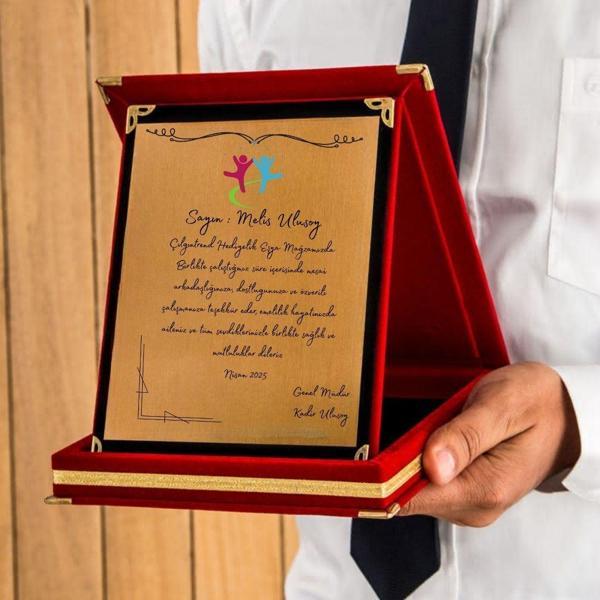 Sayın : Melis Ulusoy
Çılgıntrend Hediyelik Eşya Mağazamızda
Birlikte çalıştığımız süre içerisinde mesai
arkadaşlığınıza, dostluğunuza ve özverili
çalışmanıza teşekkür eder, emeklilik hayatınızda
aileniz ve tüm sevdiklerinizle birlikte sağlık ve
mutluluklar dileriz
Nisan 2025
Genel Müdür
Kadir Ulusoy